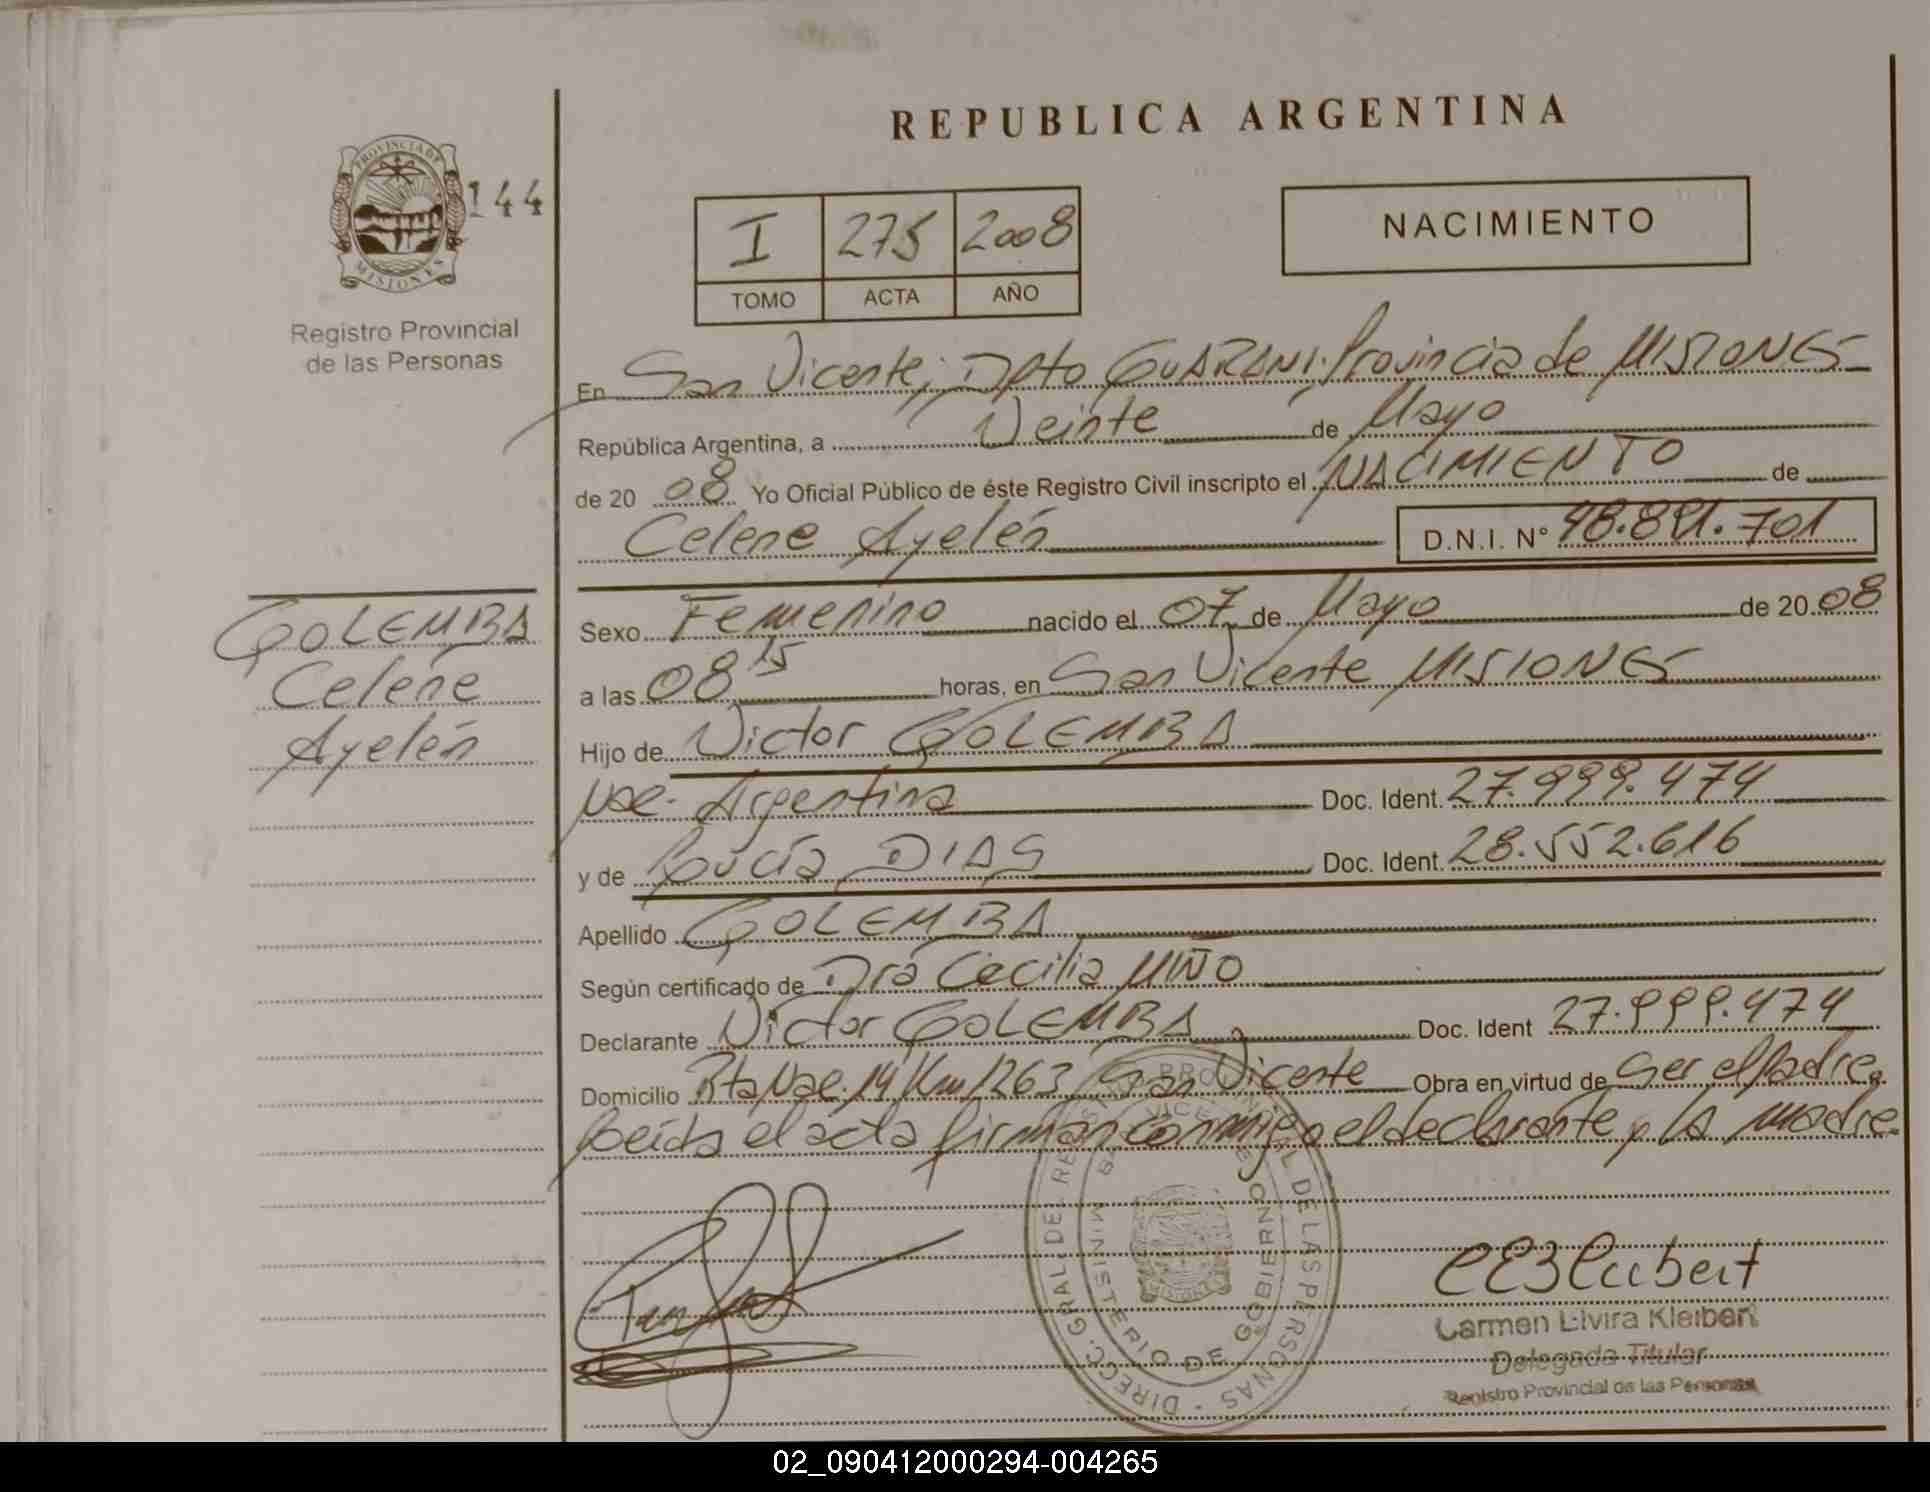 REPUBLICA ARGENTINA
PROVINCIA DE
MISIONES
144
Registro Provincial
de las Personas
I 275 2008
TOMO ACTA AÑO
NACIMIENTO
En San Vicente; Dpto GUARANI; Provincia de MISIONES
República Argentina, a Veinte de Mayo
de 20 08 Yo Oficial Público de éste Registro Civil inscripto el NACIMIENTO de
Celene Ayelén D.N.I. Nº 48.891.701
GOLEMBA
Celene
Ayelén
Sexo Femenino nacido el 07 de Mayo de 20 08
a las 08 15 horas, en San Vicente MISIONES
Hijo de Victor GOLEMBA
Nac. Argentina Doc. Ident. 27.999.474
y de Lucía DIAS Doc. Ident. 28.552.616
Apellido GOLEMBA
Según certificado de Dra Cecilia MIÑO
Declarante Victor GOLEMBA Doc. Ident 27.999.474
Domicilio Rta Nac. 14 Km 1263 San Vicente Obra en virtud de Ser el Padre.
Leída el acta firman conmigo el declarante y la madre.
DIRECC. GRAL. DEL REGISTRO PROVINCIAL DE LAS PERSONAS
MINISTERIO DE GOBIERNO
MISIONES
Carmen Elvira Kleibert
Delegada Titular
Registro Provincial de las Personas
02_090412000294-004265